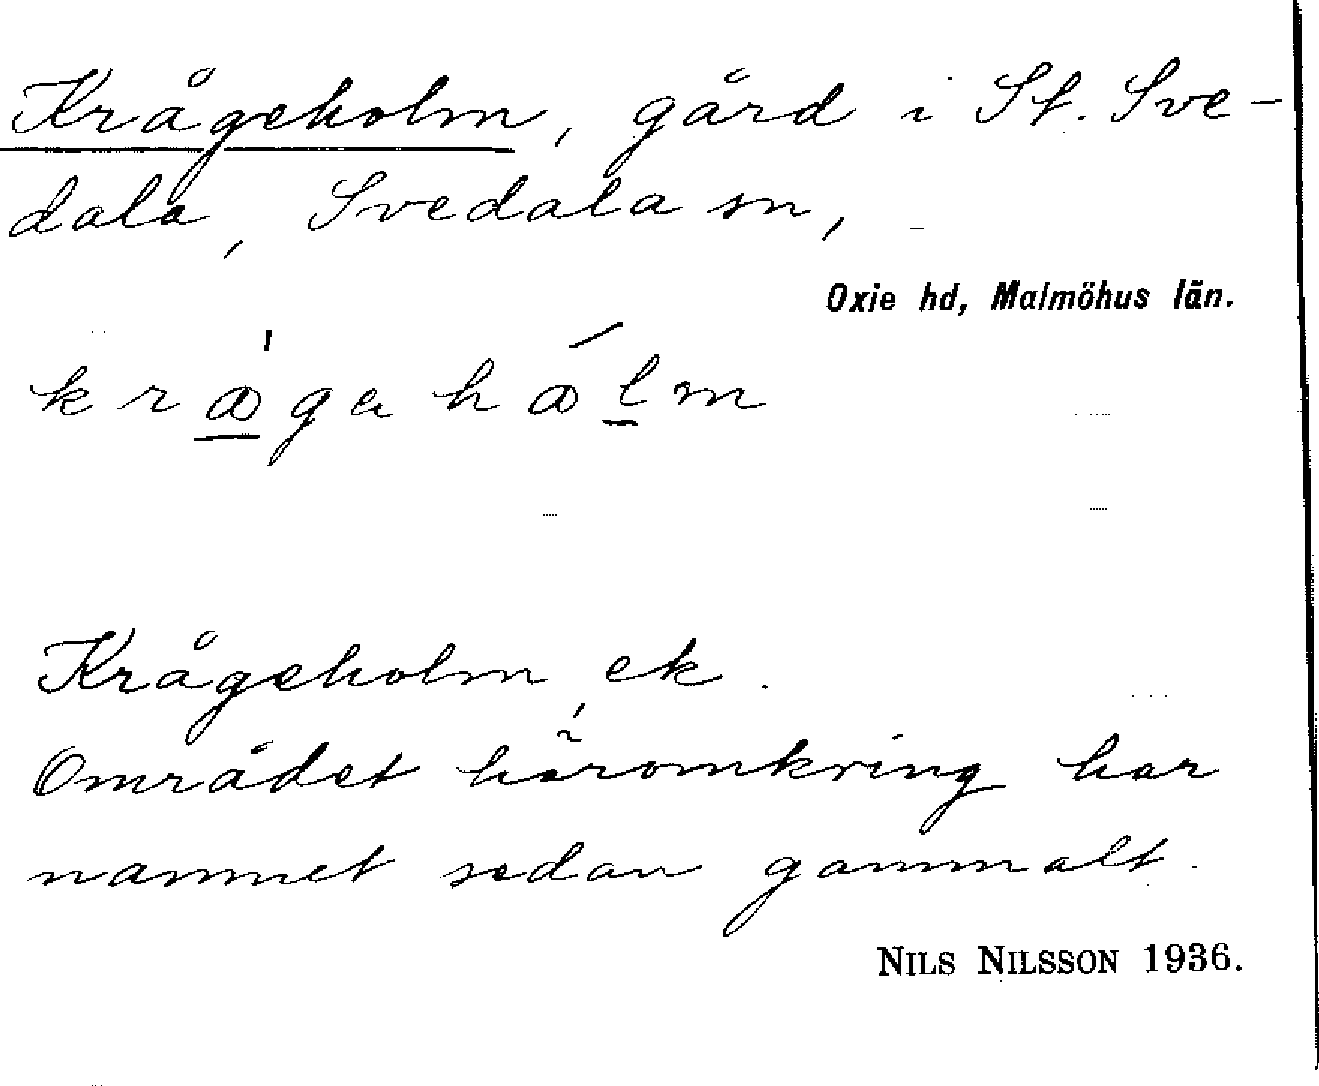 Krågeholm, gård i St. Sve-
dala, Svedala sn,
Oxie hd, Malmöhus län.
Krågeholm, ek.
Området häromkring har
namnet sedan gammalt.
NILS NILSSON 1936.